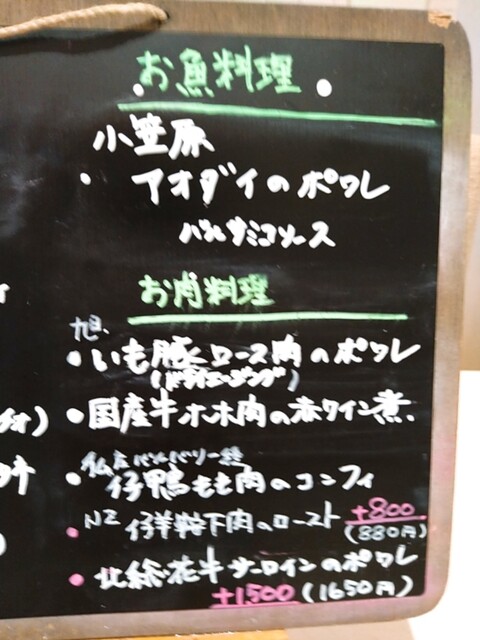 お魚料理
小笠原
・アオダイのポワレ
バルサミコソース
お肉料理
旭、
・いも豚ロース肉のポワレ
(ドライエージング)
・国産牛ホホ肉の赤ワイン煮
バルバリー種
・仔鴨もも肉のコンフィ
+800
・NZ 仔羊 肉のロースト
(880円)
・北総花牛サーロインのポワレ
+1,500 (1650円)